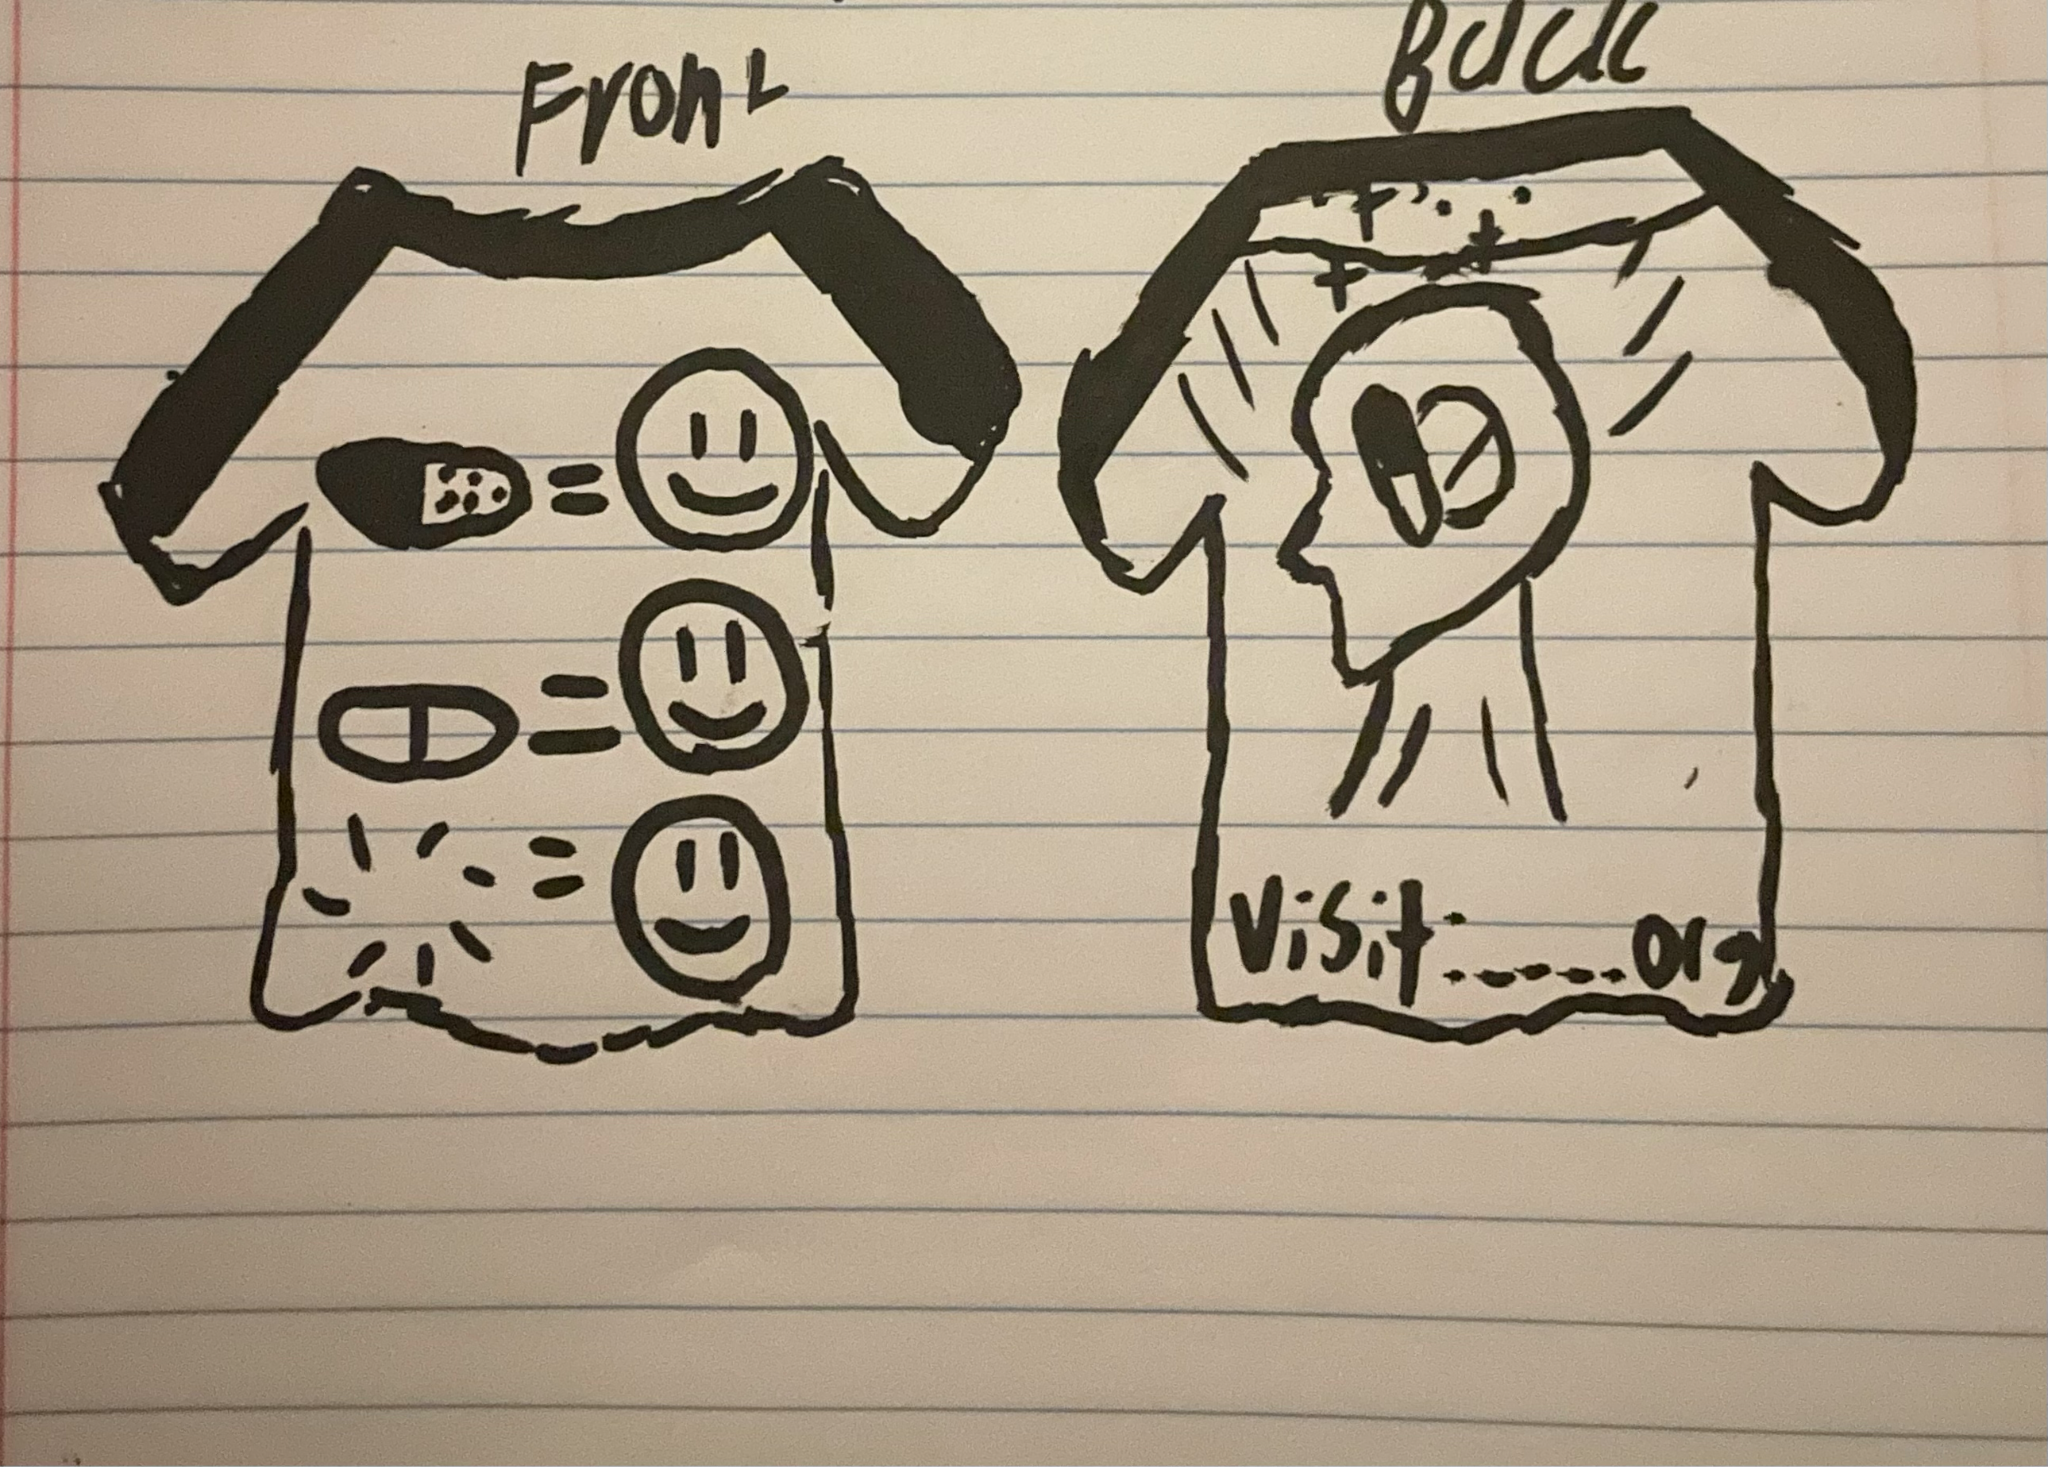 Front
Back
=
=
=
Visit:.....org